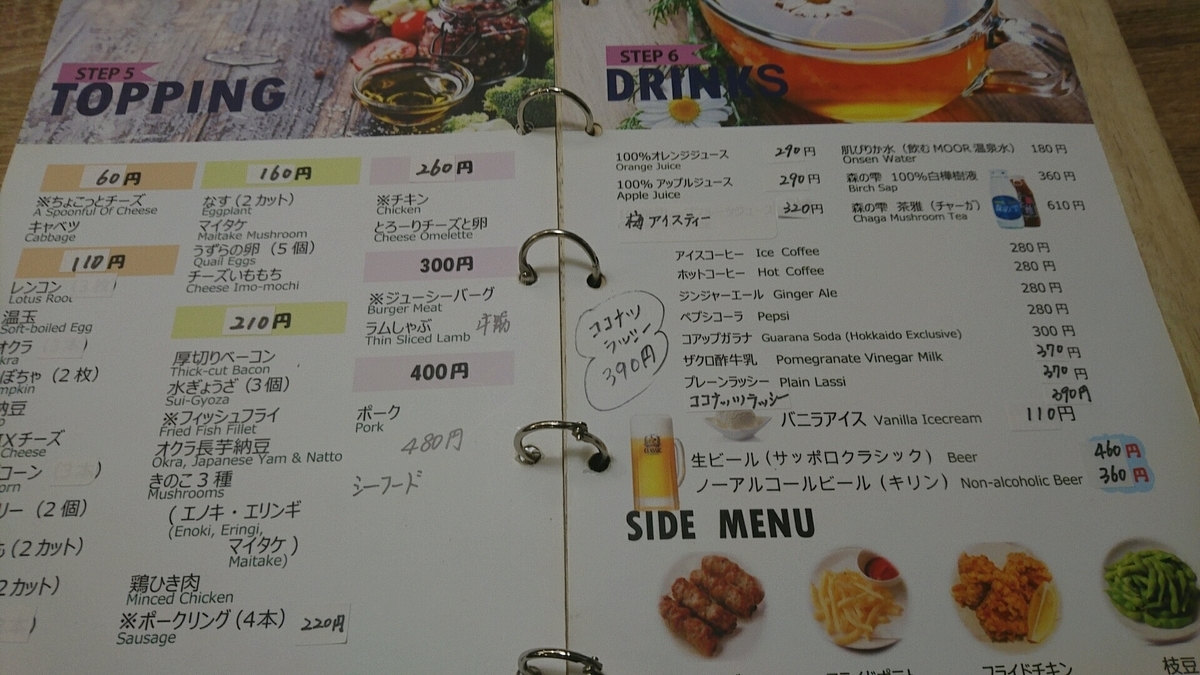 STEP 5
TOPPING
60円
※ちょこっとチーズ
A Spoonful Of Cheese
キャベツ
Cabbage
110円
レンコン
Lotus Root
温玉
Soft-boiled Egg
オクラ
kra
ぼちゃ（2枚）
mpkin
納豆
Xチーズ
Cheese
コーン
orn
リー（2個）
（2カット）
2カット）
160円
なす（2カット）
Eggplant
マイタケ
Maitake Mushroom
うずらの卵（5個）
Quail Eggs
チーズいももち
Cheese Imo-mochi
210円
厚切りベーコン
Thick-cut Bacon
水ぎょうざ（3個）
Sui-Gyoza
※フィッシュフライ
Fried Fish Fillet
オクラ長芋納豆
Okra, Japanese Yam & Natto
きのこ3種
Mushrooms
（エノキ・エリンギ
(Enoki, Eringi,
マイタケ）
Maitake)
鶏ひき肉
Minced Chicken
※ポークリング（4本） 220円
Sausage
260円
※チキン
Chicken
とろーりチーズと卵
Cheese Omelette
300円
※ジューシーバーグ
Burger Meat
ラムしゃぶ
Thin Sliced Lamb
400円
ポーク
Pork
480円
シーフード
STEP 6
DRINKS
100%オレンジジュース 290円
Orange Juice
100%アップルジュース 290円
Apple Juice
梅アイスティー 320円
肌ぴりか水（飲むMOOR温泉水） 180円
Onsen Water
森の雫 100%白樺樹液 360円
Birch Sap
森の雫 茶雅（チャーガ） 610円
Chaga Mushroom Tea
アイスコーヒー Ice Coffee 280円
ホットコーヒー Hot Coffee 280円
ジンジャーエール Ginger Ale 280円
ペプシコーラ Pepsi 280円
コアップガラナ Guarana Soda (Hokkaido Exclusive) 300円
ザクロ酢牛乳 Pomegranate Vinegar Milk 370円
プレーンラッシー Plain Lassi 370円
ココナッツラッシー 390円
ココナツ
ラッシー
390円
バニラアイス Vanilla Icecream 110円
生ビール（サッポロクラシック） Beer 460円
ノーアルコールビール（キリン） Non-alcoholic Beer 360円
SIDE MENU
フライドポテト
フライドチキン
枝豆